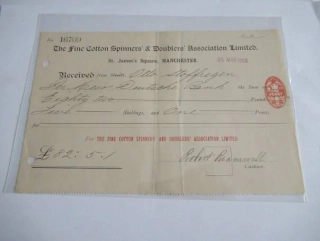 No. 16700
The Fine Cotton Spinners' & Doublers' Association Limited.
St. James's Square, MANCHESTER.
Received from Messrs. Otto
Per Bank the Sum of
Eighty two Pounds
Five Shillings and One Pence.
FOR THE FINE COTTON SPINNERS' AND DOUBLERS' ASSOCIATION LIMITED.
£82:5:1
Cashier